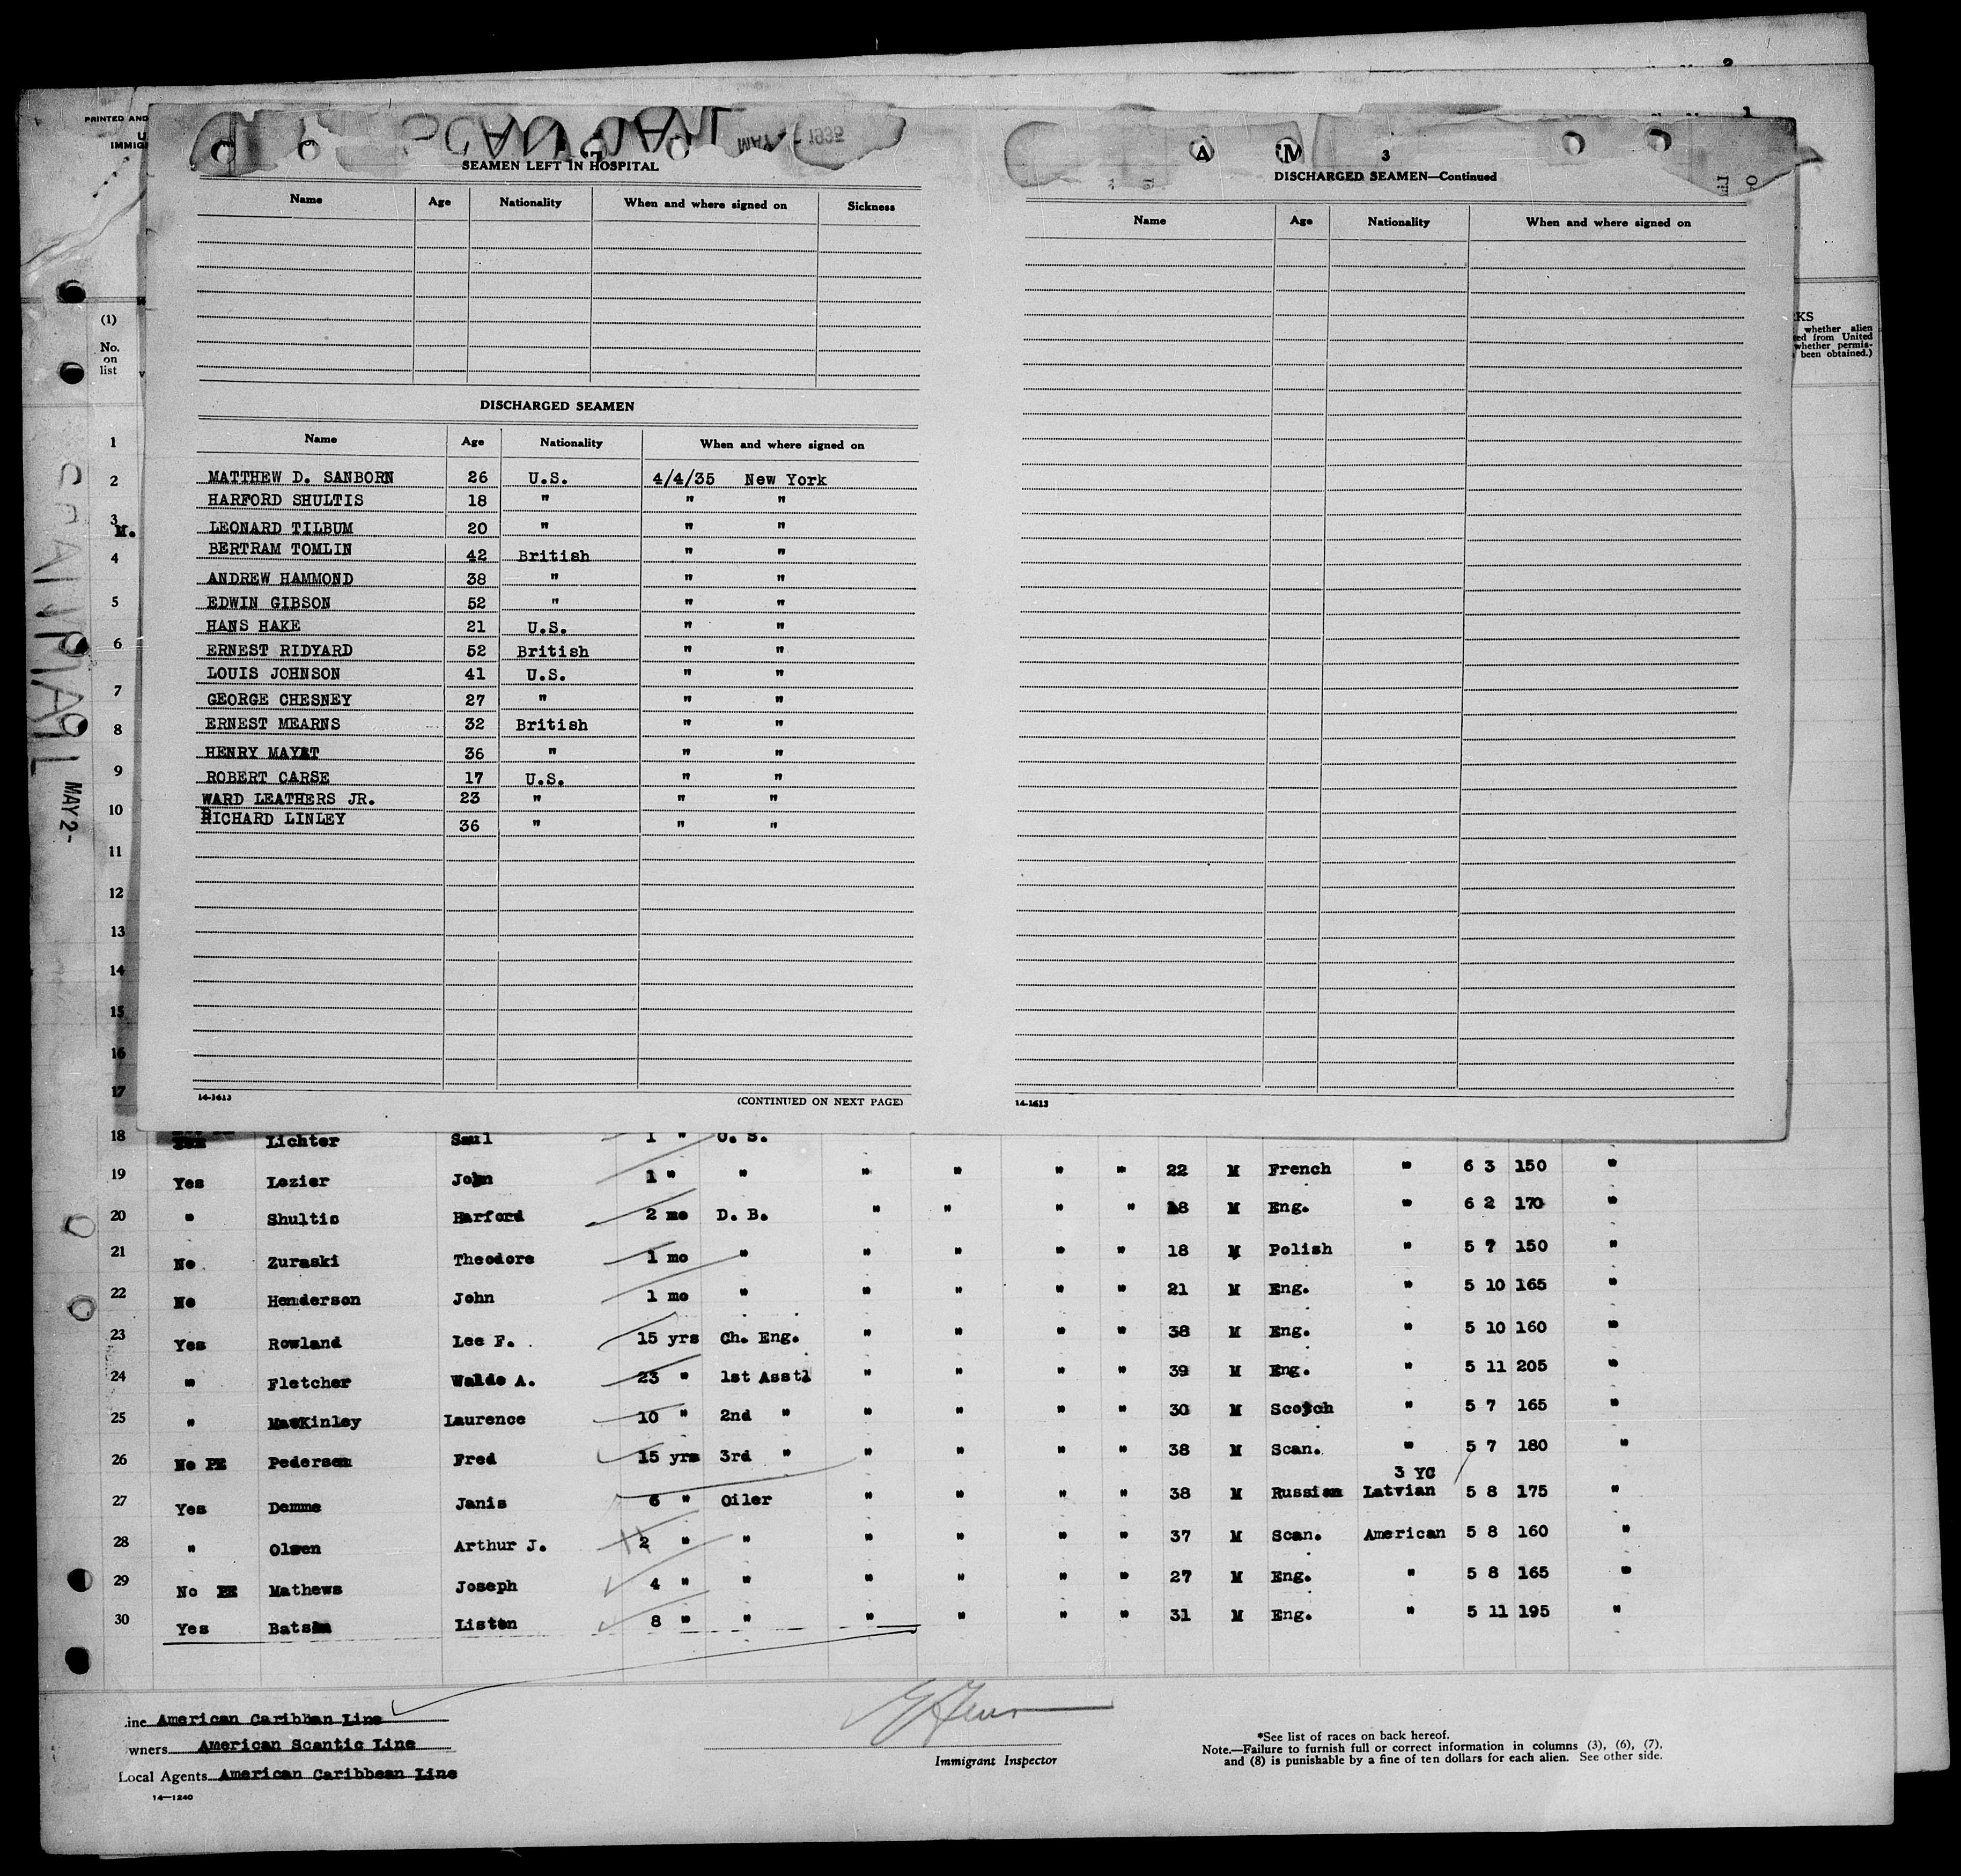 2
1
PRINTED AND
U
IMMIG
MAY 1935
SEAMEN LEFT IN HOSPITAL
Name Age Nationality When and where signed on Sickness
DISCHARGED SEAMEN
Name Age Nationality When and where signed on
MATTHEW D. SANBORN 26 U.S. 4/4/35 New York
HARFORD SHULTIS 18 " " "
LEONARD TILBUM 20 " " "
BERTRAM TOMLIN 42 British " "
ANDREW HAMMOND 38 " " "
EDWIN GIBSON 52 " " "
HANS HAKE 21 U.S. " "
ERNEST RIDYARD 52 British " "
LOUIS JOHNSON 41 U.S. " "
GEORGE CHESNEY 27 " " "
ERNEST MEARNS 32 British " "
HENRY MAYAT 36 " " "
ROBERT CARSE 17 U.S. " "
WARD LEATHERS JR. 23 " " "
RICHARD LINLEY 36 " " "
14-1613 (CONTINUED ON NEXT PAGE)
A M 3
DISCHARGED SEAMEN—Continued
Name Age Nationality When and where signed on
14-1613
RKS
whether alien
ted from United
whether permis-
been obtained.)
(1)
No.
on
list
1
2
3
M.
4
5
6
7
8
9
10
11
12
13
14
15
16
17
MAY 2-
18 Yes Lichter Saul 1 " U. S.
19 Yes Lozier John 1 " " " " " " 22 M French " 6 3 150 "
20 " Shultis Harford 2 mo D. B. " " " " 18 M Eng. " 6 2 170 "
21 No Zuraski Theodore 1 mo " " " " " 18 M Polish " 5 7 150 "
22 No Henderson John 1 mo " " " " " 21 M Eng. " 5 10 165 "
23 Yes Rowland Lee F. 15 yrs Ch. Eng. " " " " 38 M Eng. " 5 10 160 "
24 " Fletcher Waldo A. 23 " 1st Asst " " " " 39 M Eng. " 5 11 205 "
25 " MacKinley Laurence 10 " 2nd " " " " " 30 M Scotch " 5 7 165 "
26 No PE Pedersen Fred 15 yrs 3rd " " " " " 38 M Scan. " 5 7 180 "
3 YC
27 Yes Demme Janis 6 " Oiler " " " " 38 M Russian Latvian 5 8 175 "
28 " Olsen Arthur J. 2 " " " " " " 37 M Scan. American 5 8 160 "
29 No PE Mathews Joseph 4 " " " " " " 27 M Eng. " 5 8 165 "
30 Yes Batson Liston 8 " " " " " " 31 M Eng. " 5 11 195 "
ine American Caribban Line
wners American Scantic Line
Local Agents American Caribbean Line
14—1240
Immigrant Inspector
*See list of races on back hereof.
Note.—Failure to furnish full or correct information in columns (3), (6), (7),
and (8) is punishable by a fine of ten dollars for each alien. See other side.